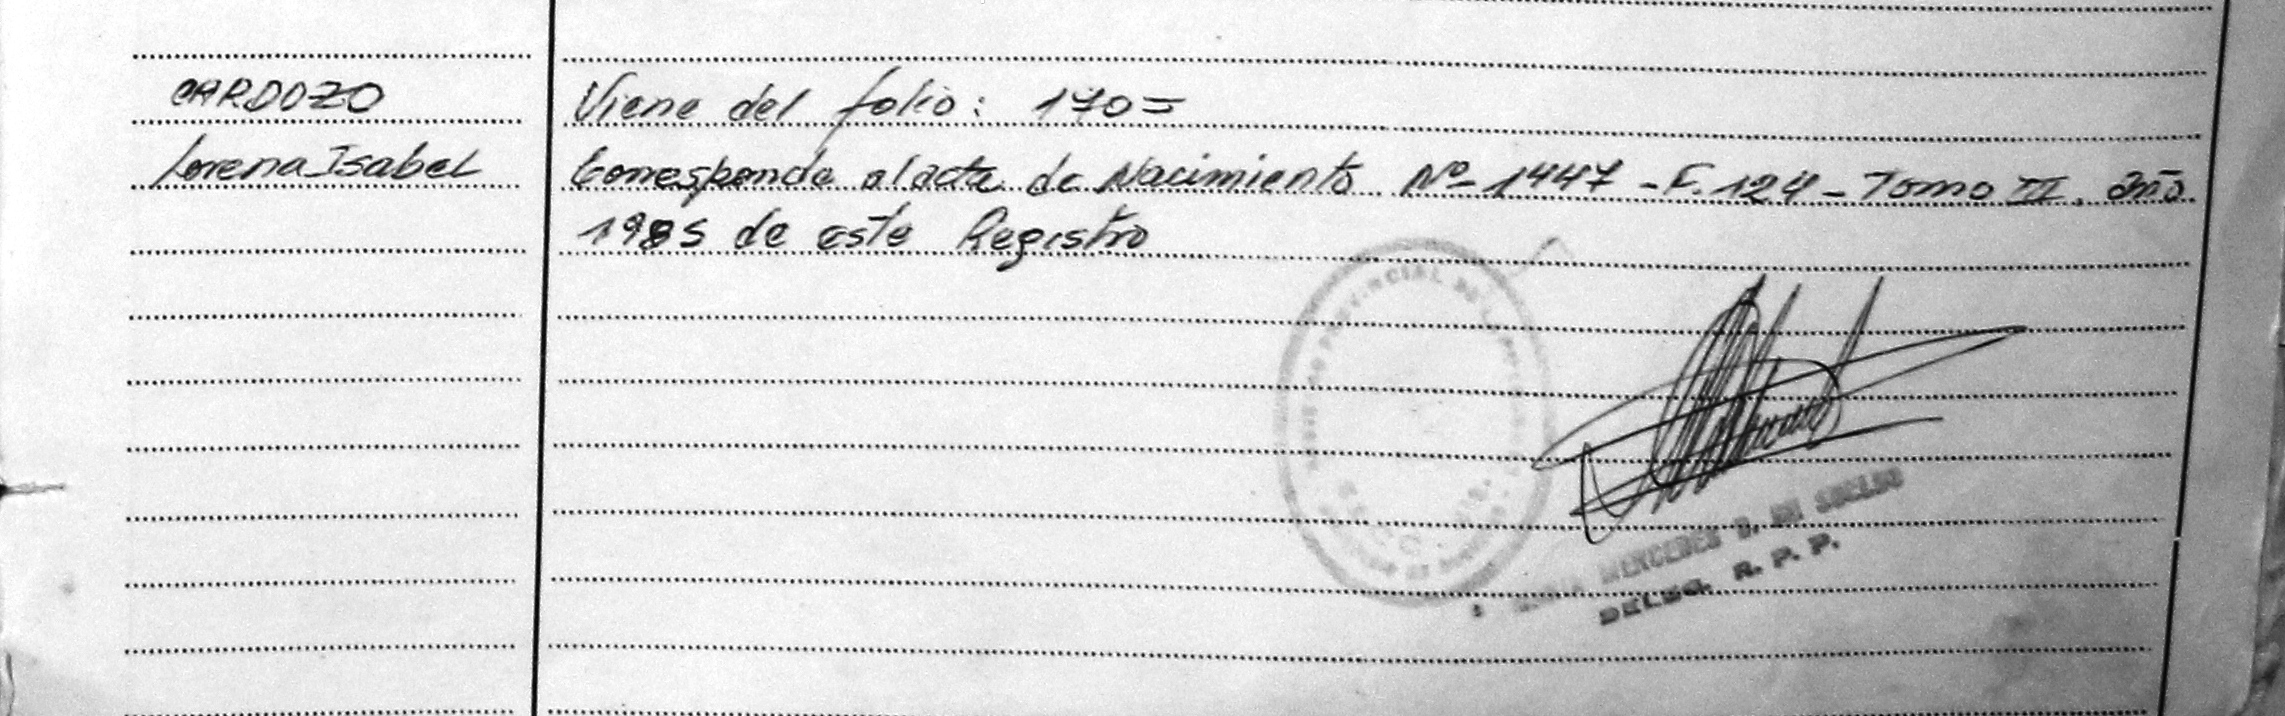 CARDOZO
Lorena Isabel
Viene del folio: 170=
Corresponde al acta de Nacimiento Nº 1447 - F. 124 - Tomo III. Año
1985 de este Registro
MERCEDES D. DI SUELDO
DELEG. R. P. P.